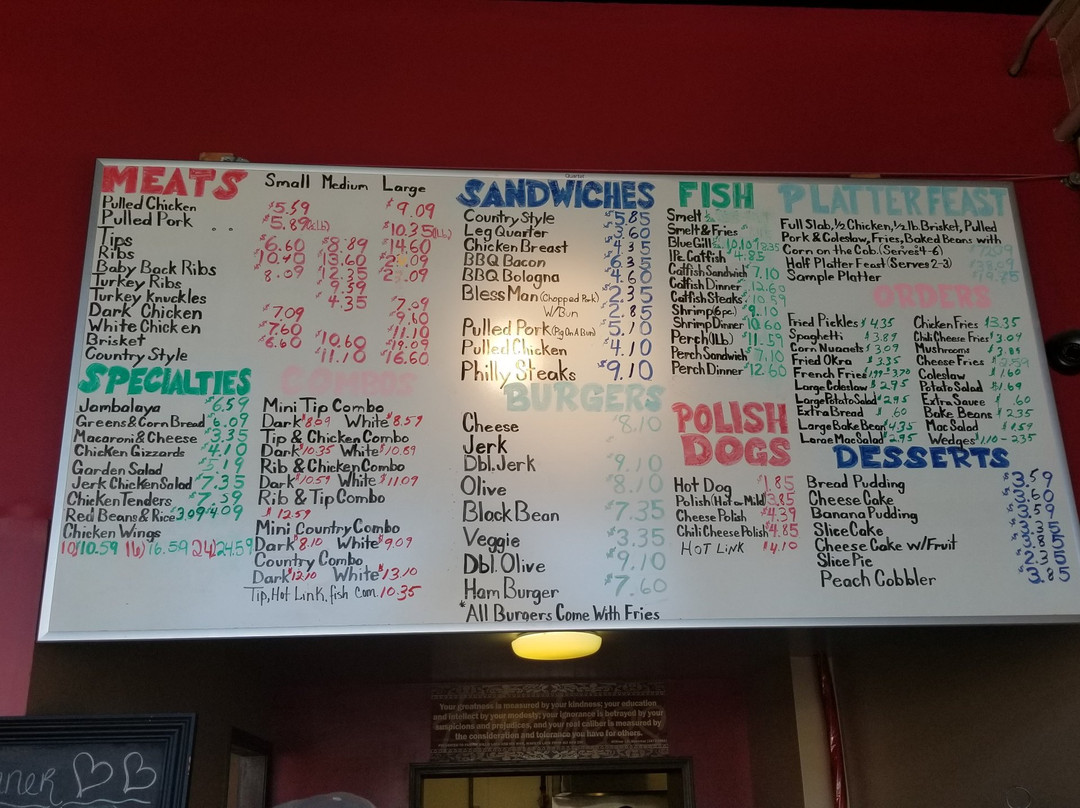 Quartet
MEATS Small Medium Large
Pulled Chicken $5.59 $9.09
Pulled Pork $5.89 $10.35
Tips $6.60 $8.89 $14.60
Ribs 13.60
Baby Back Ribs 8.09 12.35
Turkey Ribs 9.39
Turkey Knuckles 4.35
Dark Chicken $7.09 $7.09
White Chicken $7.60
Brisket $6.60 $10.60 $19.09
Country Style $11.10 $16.60
SPECIALTIES
Jambalaya $6.59
Greens & Corn Bread $6.09
Macaroni & Cheese $3.35
Chicken Gizzards $4.10
Garden Salad $5.19
Jerk Chicken Salad $7.35
Chicken Tenders $7.59
Red Beans & Rice 3.09 4.09
Chicken Wings
10) 10.59 16) 16.59 24) 24.59
COMBOS
Mini Tip Combo
Dark $8.09 White $8.59
Tip & Chicken Combo
Dark $10.35 White $10.89
Rib & Chicken Combo
Dark $10.59 White $11.09
Rib & Tip Combo
$12.59
Mini Country Combo
Dark $8.10 White $9.09
Country Combo
Dark $12.10 White $13.10
Tip, Hot Link, fish com. 10.35
SANDWICHES
Country Style $5.85
Leg Quarter $3.60
Chicken Breast $4.35
BBQ Bacon $6.35
BBQ Bologna $4.60
Bless Man (Chopped Pork) $2.35
W/Bun $2.85
Pulled Pork (Pig On A Bun) $5.10
Pulled Chicken $4.10
Philly Steaks $9.10
BURGERS
Cheese $8.10
Jerk
Dbl. Jerk $9.10
Olive $8.10
Black Bean $7.35
Veggie $3.35
Dbl. Olive $9.10
Ham Burger $7.60
*All Burgers Come With Fries
FISH
Smelt
Smelt & Fries
Blue Gill
1Pc Catfish 4.85
Catfish Sandwich 7.10
Catfish Dinner 12.60
Catfish Steaks 10.59
Shrimp (6pc.) 9.10
Shrimp Dinner 10.60
Perch (1Lb) $11.59
Perch Sandwich 7.10
Perch Dinner 12.60
POLISH
DOGS
Hot Dog $1.85
Polish (Hot or Mild) $3.85
Cheese Polish $4.39
Chili Cheese Polish $4.85
HOT LINK $4.10
PLATTER FEAST
Full Slab, 1/2 Chicken, 1/2 lb. Brisket, Pulled
Pork & Coleslaw, Fries, Baked Beans with
Corn on the Cob. (Serves 4-6)
Half Platter Feast (Serves 2-3)
Sample Platter
ORDERS
Fried Pickles $4.35
Spaghetti $3.89
Corn Nuggets $3.09
Fried Okra $3.35
French Fries
Large Coleslaw $2.95
Large Potato Salad $2.95
Extra Bread $.60
Large Bake Bean $4.35
Large Mac Salad $2.95
Chicken Fries $3.35
Chili Cheese Fries $3.09
Mushrooms $3.89
Cheese Fries $2.59
Coleslaw $1.60
Potato Salad $1.69
Extra Sauce $.60
Bake Beans $2.35
Mac Salad $1.59
Wedges $1.10-2.35
DESSERTS
Bread Pudding $3.59
Cheese Cake $3.60
Banana Pudding $3.59
Slice Cake $3.35
Cheese Cake w/Fruit $3.85
Slice Pie $2.35
Peach Cobbler $3.85
Your greatness is measured by your kindness; your education
and intellect by your modesty; your ignorance is betrayed by your
suspicions and prejudices, and your real caliber is measured by
the consideration and tolerance you have for others.